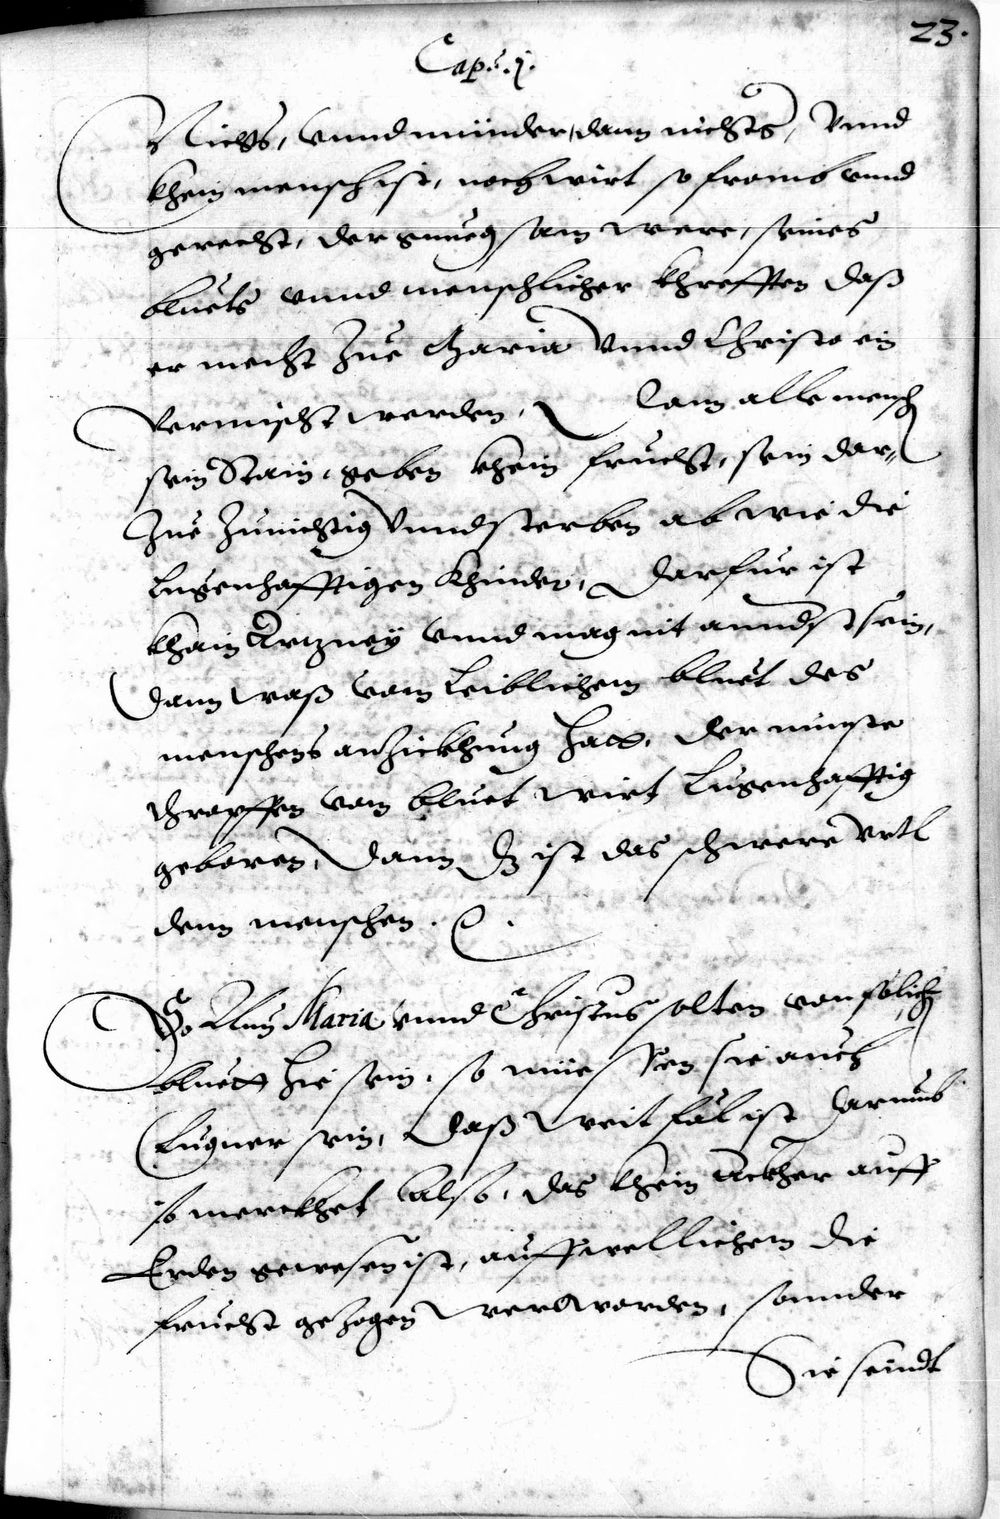 23.
Cap. j.
Nichts, vnnd minder, dann nichts, Vnnd
khein mensch ist, noch wirt so fromb vnnd
gerecht, der gnueg sam were, seines
bluets vnnd menschlicher khrefften daß
er mecht Zue Maria Vnnd Christo ein
Vermischt werden, Dann alle mensch
sein Stain, geben khein frucht, sein dar„
Zue Zunichtig Vnnd sterben ab wie die
lugenhafftigen khinder, Darfür ist
khain Artzney vnnd mag nit annderst sein,
Dann waß vom Leiblichem bluet des
menschens anzickhung hatt, der minste
thropffen vom bluet wirt Lugenhafftig
geboren, Dann dz ist das schwere Vrtl
denn menschen.
So Nun Maria vnnd Christus solten von solich
bluett hie sein, so müessen sie auch
Lugner sein, Daß weit fäl ist Darumb
so merckhet also, das khein Ackher auff
Erden gewesen ist, auff wellichem die
frucht gezogen wer worden, sonnder
Sie seindt